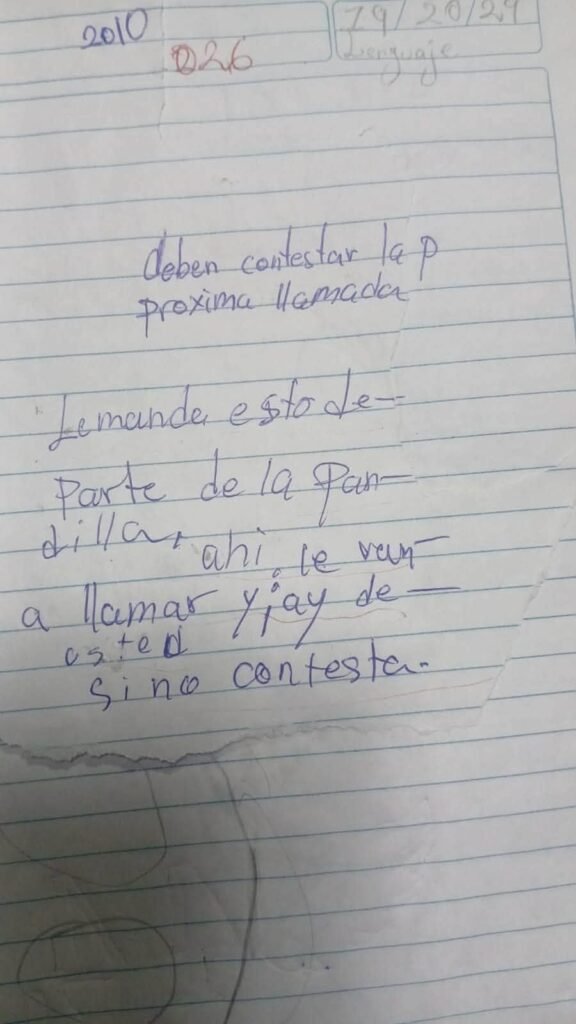 2010
026
19/20/24
Lenguaje
deben contestar la p
proxima llamada
Lemande esto de-
Parte de la Pan-
dilla, ahi le van-
a llamar y¡ay de-
osted
sino contesta.